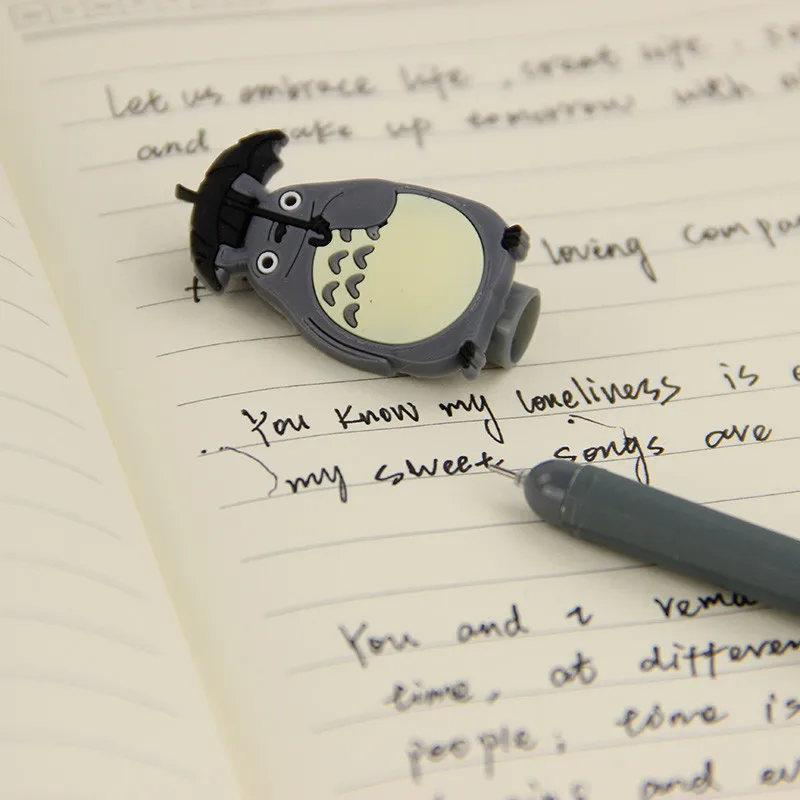 Let us embrace life, trust life.
and wake up tomorrow with
loving compa
You know my loneliness is
my sweet songs are
You and I rema
time, at differen
people; time is
and